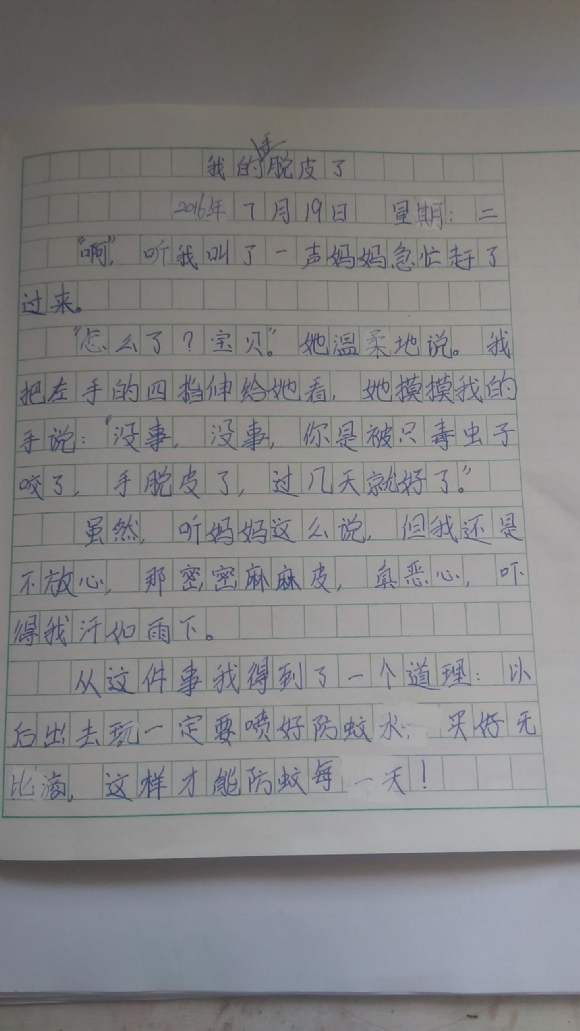 我的手脱皮了
2016年7月19日 星期:二
“啊”,听我叫了一声妈妈急忙赶了
过来。
“怎么了?宝贝。”她温柔地说。我
把左手的四指伸给她看,她摸摸我的
手说:“没事,没事,你是被只毒虫子
咬了,手脱皮了,过几天就好了。”
虽然,听妈妈这么说,但我还是
不放心,那密密麻麻皮,真恶心,吓
得我汗如雨下。
从这件事我得到了一个道理:以
后出去玩一定要喷好防蚊水;买好无
比滴,这样才能防蚊每一天!